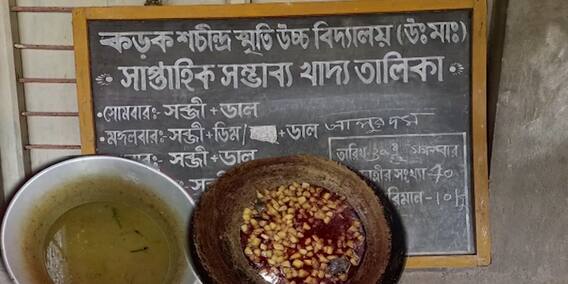 কড়ক শচীন্দ্র স্মৃতি উচ্চ বিদ্যালয় (উঃ মাঃ)
সাপ্তাহিক সম্ভাব্য খাদ্য তালিকা
সোমবারঃ- সব্জী + ডাল
মঙ্গলবারঃ- সব্জী + ডিম / + ডাল আলুর দম
বারঃ- সব্জী + ডাল
তারিখ মঙ্গলবার
ত্রীর সংখ্যা 40
রিমান - 10